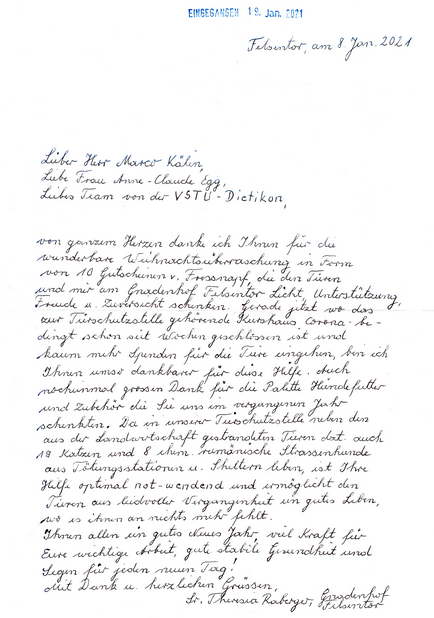 EINGEGANGEN 19. Jan. 2021
Felsentor, am 8. Jan. 2021
Lieber Herr Marco Kälin,
Liebe Frau Anne-Claude Egg,
Liebes Team von der VSTU-Dietikon,
von ganzem Herzen danke ich Ihnen für die
wunderbare Weihnachtsüberraschung in Form
von 10 Gutscheinen v. Fressnapf, die den Tieren
und mir am Gnadenhof Felsentor Licht, Unterstützung,
Freude u. Zuversicht schenken. Gerade jetzt wo das
zur Tierschutzstelle gehörende Kurshaus Corona-be-
dingt schon seit Wochen geschlossen ist und
kaum mehr Spenden für die Tiere eingehen, bin ich
Ihnen umso dankbarer für diese Hilfe. Auch
nocheinmal grossen Dank für die Palette Hundefutter
und Zubehör die Sie uns im vergangenen Jahr
schenkten. Da in unserer Tierschutzstelle neben den
aus der Landwirtschaft gestrandeten Tieren dzt. auch
19 Katzen und 8 ehem. rumänische Strassenhunde
aus Tötungsstationen u. Sheltern leben, ist Ihre
Hilfe optimal not-wendend und ermöglicht den
Tieren aus leidvoller Vergangenheit ein gutes Leben,
wo es ihnen an nichts mehr fehlt.
Ihnen allen ein gutes Neues Jahr, viel Kraft für
Eure wichtige Arbeit, gute stabile Gesundheit und
Segen für jeden neuen Tag!
Mit Dank u. herzlichen Grüssen,
Sr. Theresia Raberger, Gnadenhof
Felsentor